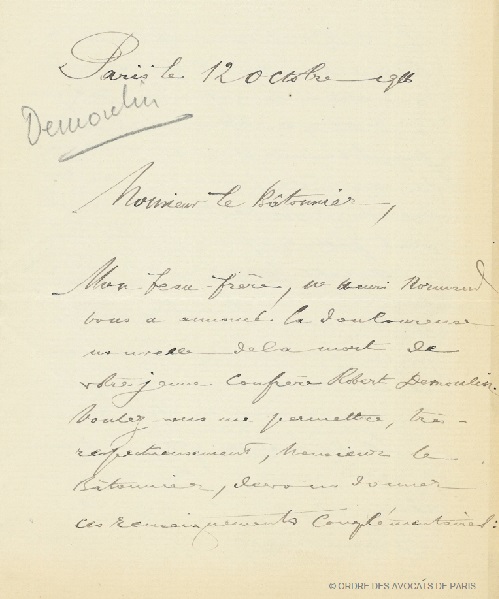 Paris le 12 Octobre
Demoulin
Monsieur le Bâtonnier,
Mon beau-frère, M Henri Normand
vous a annoncé la douloureuse
nouvelle de la mort de
votre jeune Confrère Robert Demoulin.
Voulez vous me permettre, très-
respectueusement, Monsieur le
Bâtonnier, de vous donner
ces renseignements complémentaires:
© ORDRE DES AVOCATS DE PARIS